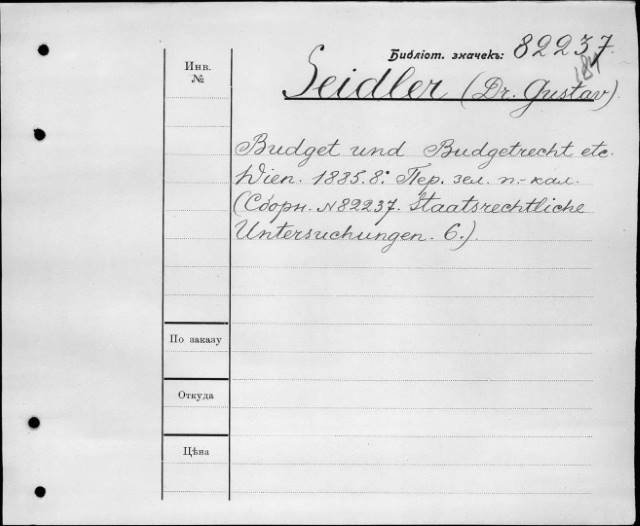 Библіот. значекъ: 82237.
Инв.
№
Seidler (Dr. Gustav)
Budget und Budgetrecht etc.
Wien. 1885. 8º. Пер. зел. п.-кал.
(Сборн. N82237. Staatsrechtliche
Untersuchungen. 6.)
По заказу
Откуда
Цѣна